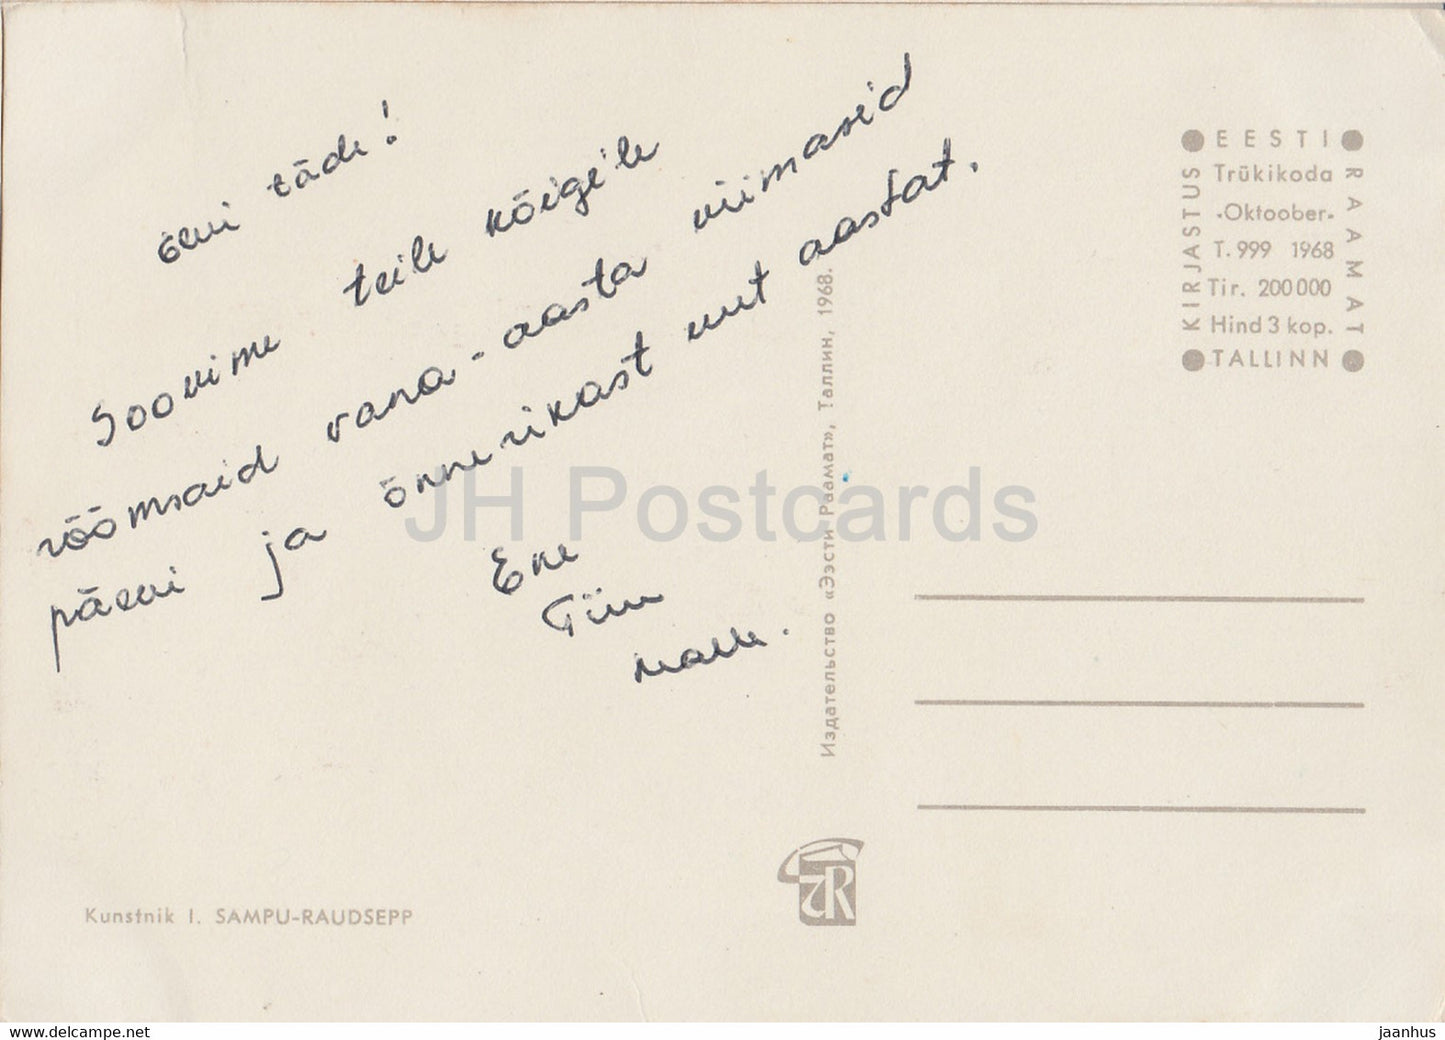 tädi!
Soovime teile kõigile
rõõmsaid vana-aasta viimaseid
päevi ja õnnerikast uut aastat.
Ene
Tiiu
Malle.
EESTI
KIRJASTUS
RAAMAT
Trükikoda
•Oktoober•
T. 999 1968
Tir. 200 000
Hind 3 kop.
TALLINN
Издательство «Ээсти Раамат», Таллин, 1968.
JH Postcards
ER
Kunstnik I. SAMPU-RAUDSEPP
www.delcampe.net
jaanhus